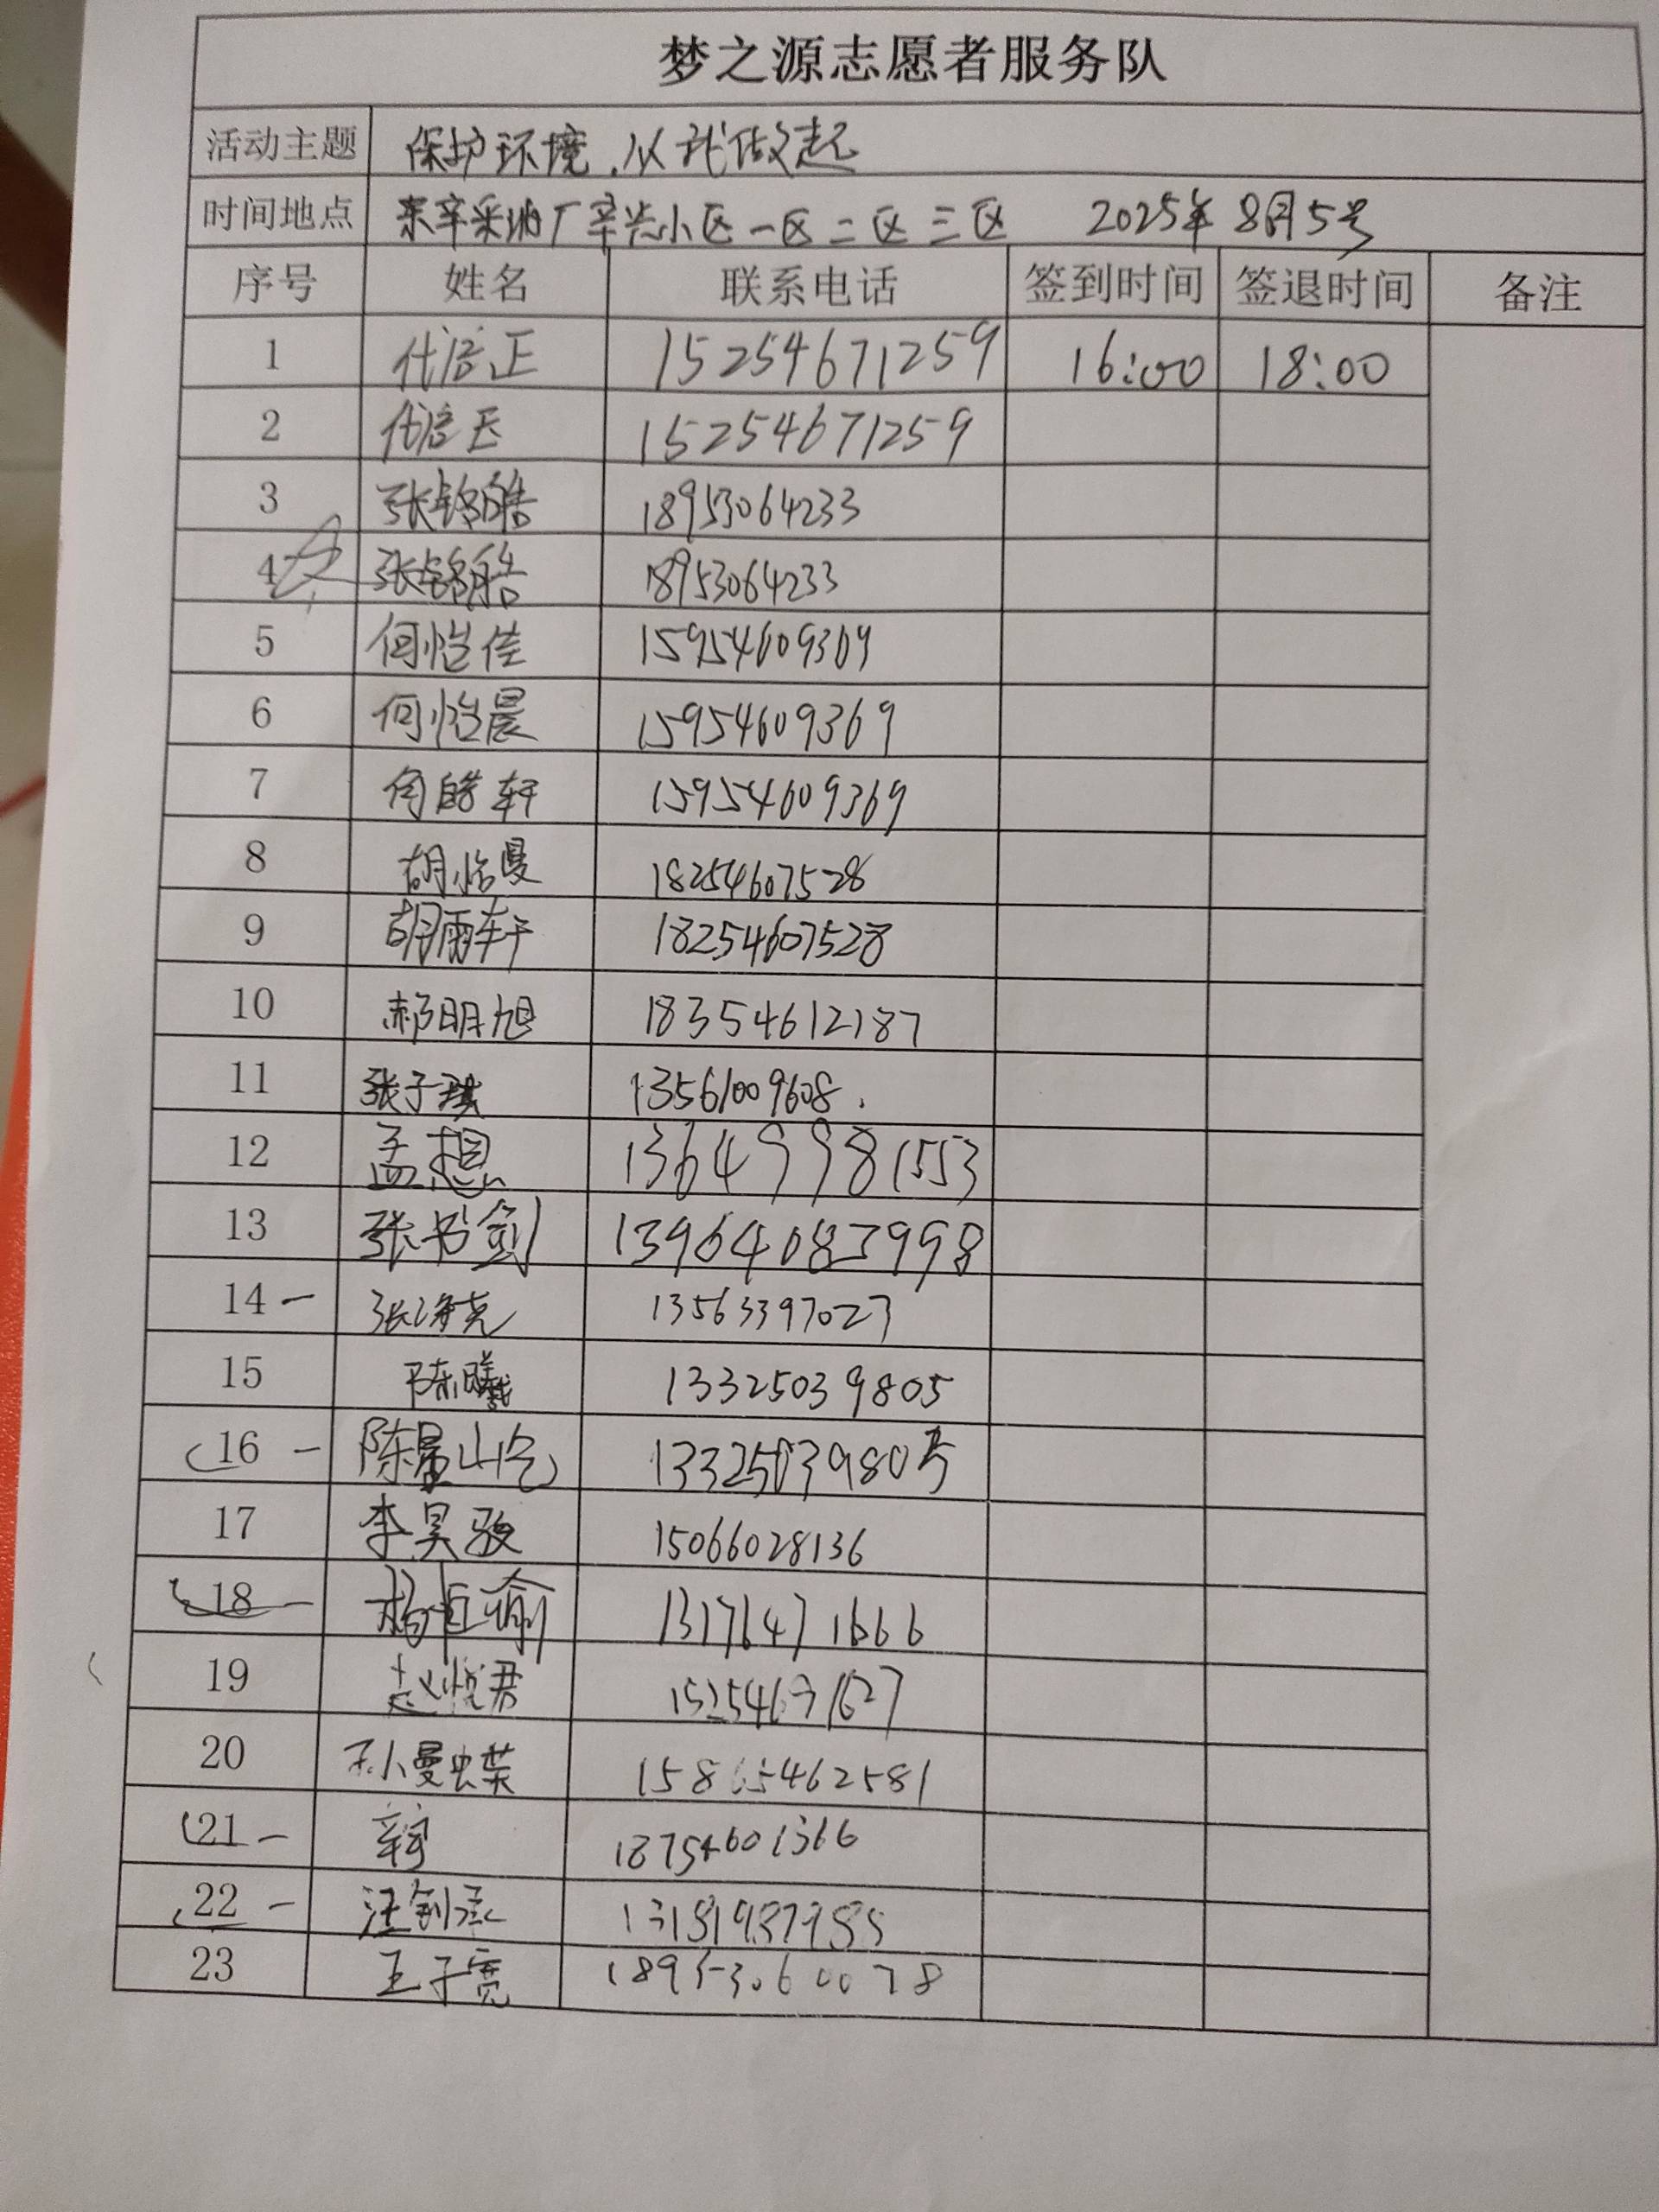 梦之源志愿者服务队
活动主题 保护环境,从我做起
时间地点 东辛采油厂辛兴小区一区二区三区 2025年8月5号
序号 姓名 联系电话 签到时间 签退时间 备注
1 代信正 15254671259 16:00 18:00
2 代信 15254671259
3 张铭皓 18953064233
4 张铭皓 18953064233
5 何恺佳 15954609369
6 何恺晨 15954609369
7 何皓轩 15954609369
8 胡怡曼 18254607528
9 胡雨轩 18254607528
10 郝明旭 18354612187
11 张子琪 13561009608
12 孟想 13649981553
13 张书剑 13964083998
14 张 13563397027
15 陈曦 13325039805
16 陈 13325039805
17 李昊骏 15066028136
18 杨 13176471666
19 赵悦君 15254671627
20 孙曼蝶 15865462581
21 辛宇 18754601366
22 汪剑承
23 王子宽 18953060078